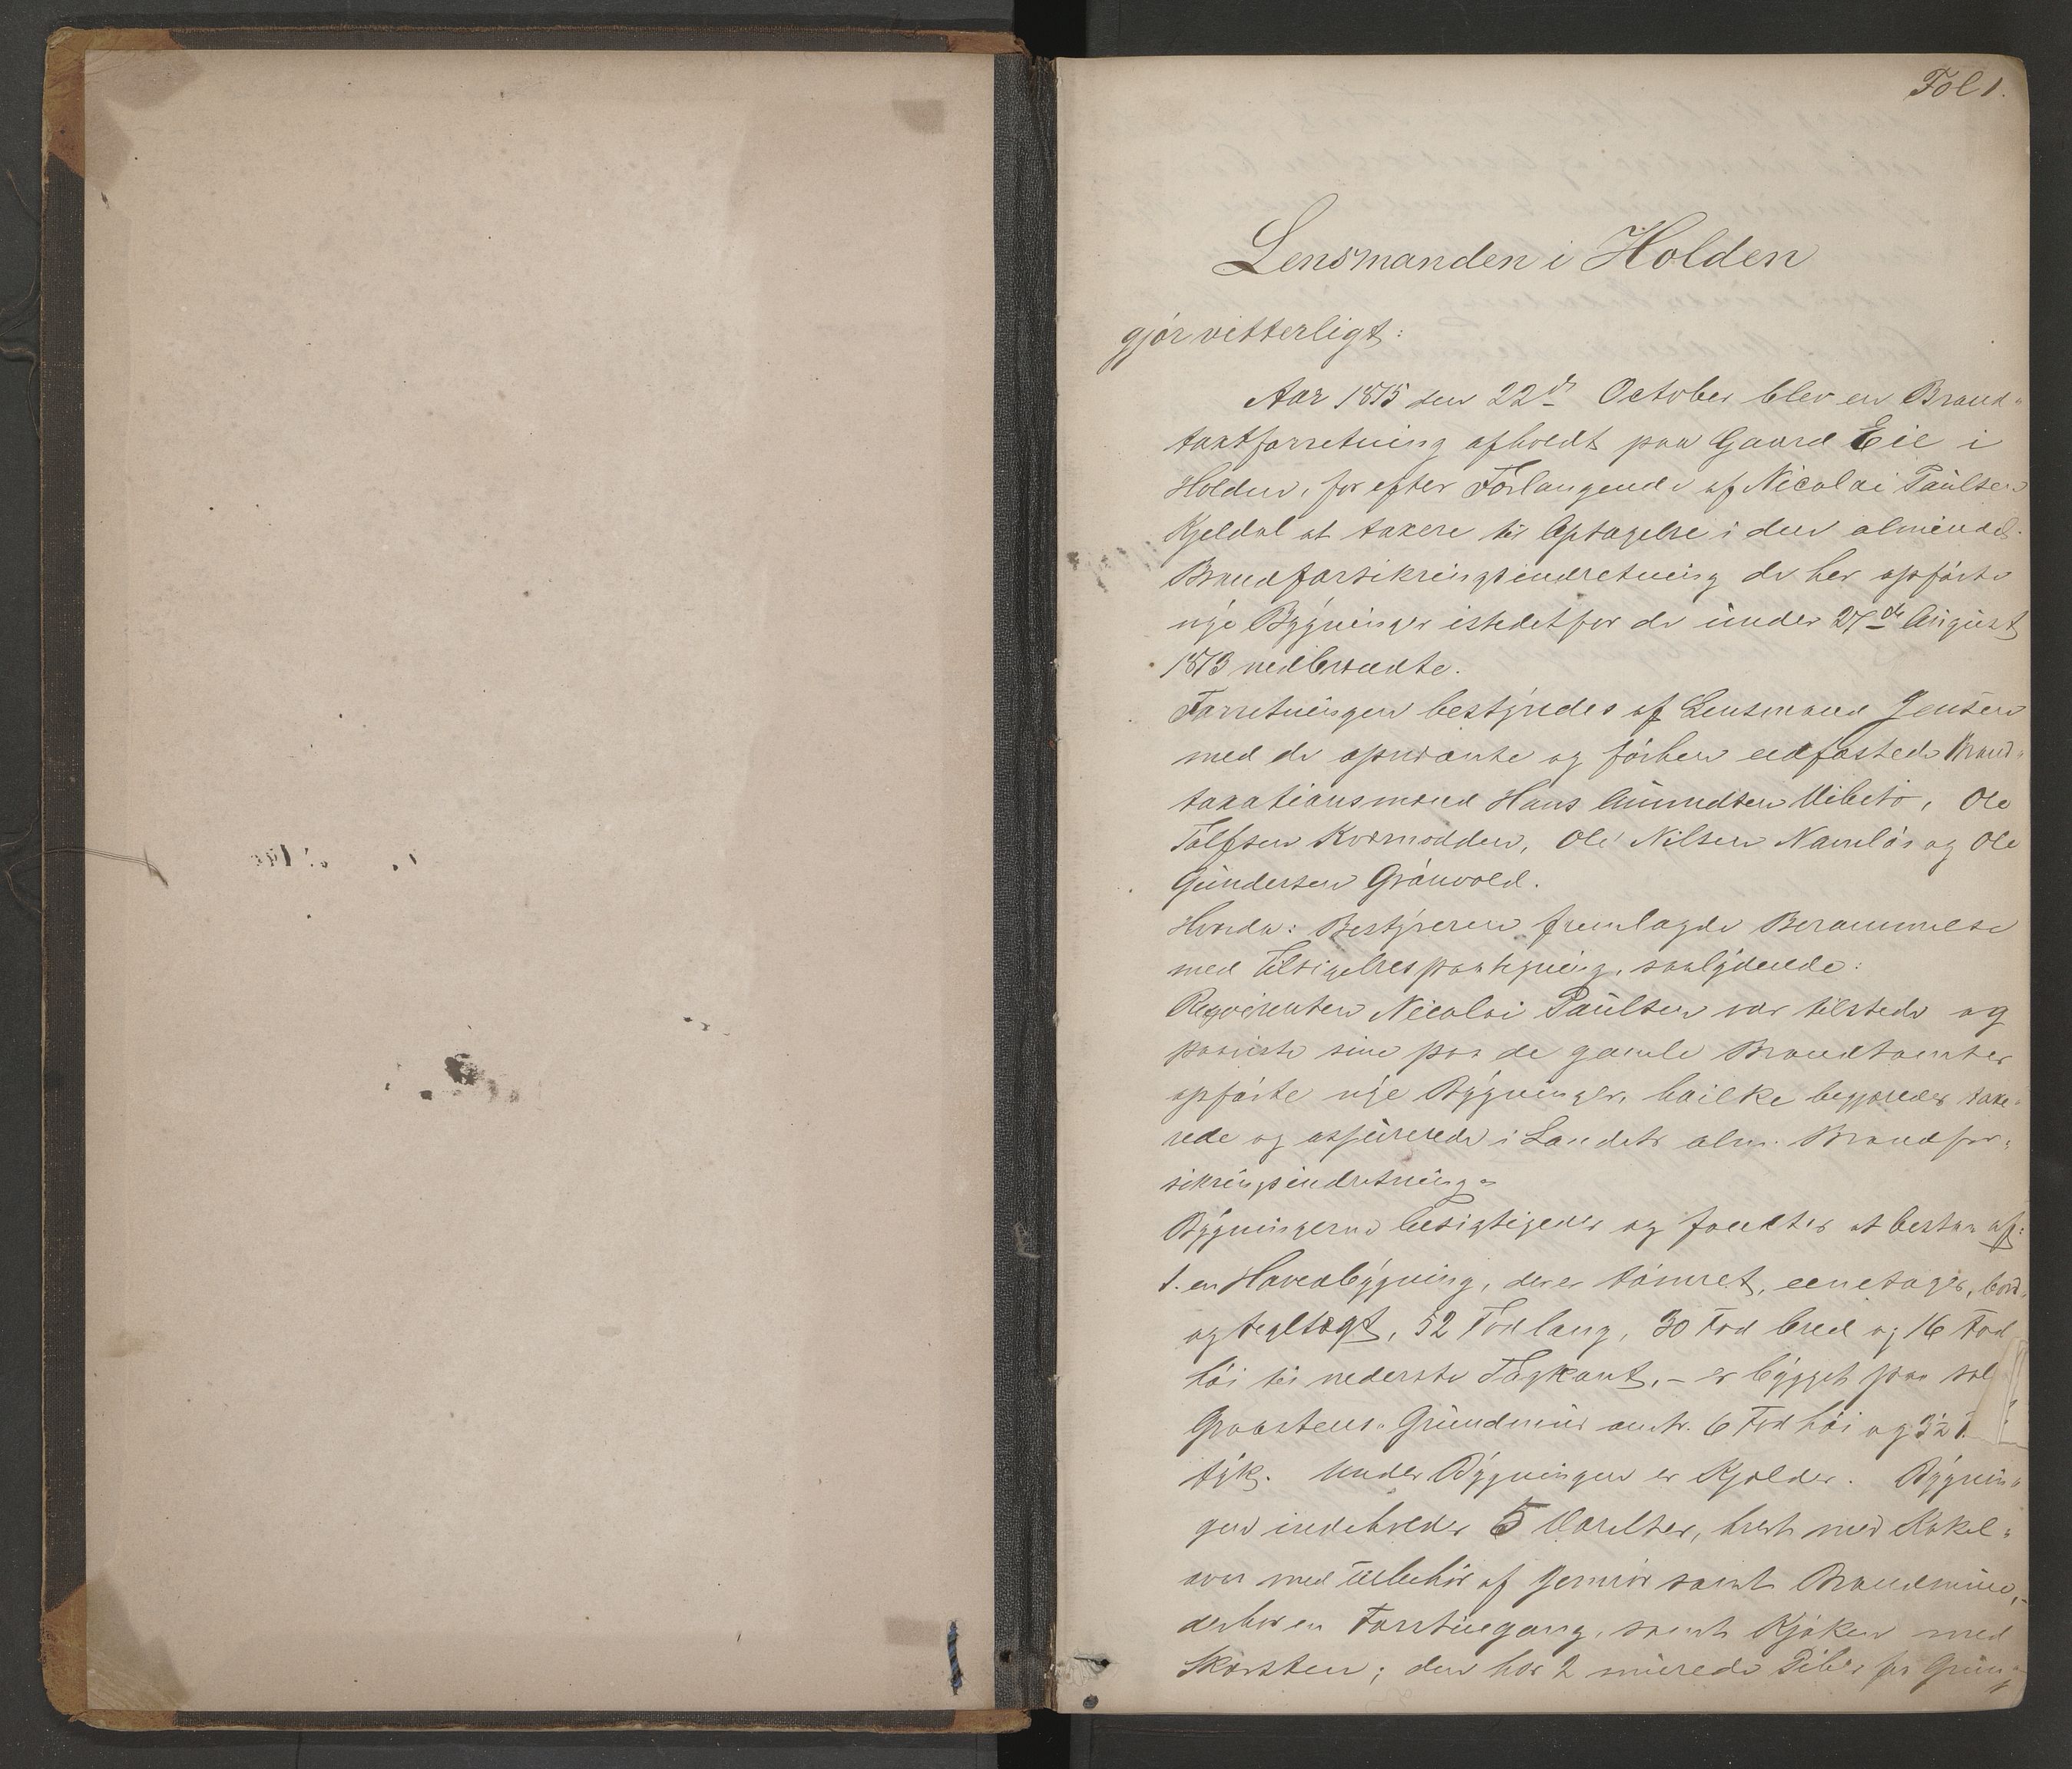 Fol 1.
Lensmanden i Holden
gjør vitterligt:
Aar 1875 den 22de October blev en Brand-
taxtforretning afholdt paa Gaard Eie i
Holden, for efter Forlangende af Nicolai Paulsen
Kjeldal at taxere til Optagelse i den almindel.
Brandforsikringsindretning de her opførte
nye Bygninger istedetfor de under 27de August
1873 nedbrændte.
Forretningen bestyredes af Lensmand Jensen
med de opnævnte og førhen edfæstede Brand-
taxationsmænd Hans Amundsen Vibetø, Ole
Tolfsen Kornmodden, Ole Nilsen Namløs og Ole
Gundersen Grønvold.
Hvorda: Bestyreren fremlagde Berammelse
med Tilsigelsespaategning, saalydende:
Reqvirenten Nicolai Paulsen var tilstede og
paaviste sine paa de gamle Brandtomter
opførte nye Bygninger, hvilke begjæredes taxe-
rede og assurerede i Landets alm. Brandfor-
sikringsindretning.
Bygningerne besigtigedes og fandtes at bestaa af:
1. en Hovedbygning, der er tømret, eenetages, bord-
og tegltægt, 52 Fod lang, 30 Fod bred og 16 Fod
høi til nederste Tagkant, - er bygget paa sol
Graastens Grundmur omtr. 6 Fod høi og 3½
tyk. Under Bygningen er Kjælder. Bygnin-
gen indeholder 5 Værelser, hvert med Kakel-
ovn med Tilbehør af Jernrør samt Brandmure,
derhos en Forstuegang, samt Kjøken med
Skorsten; den har 2 murede Piber fra Grun-